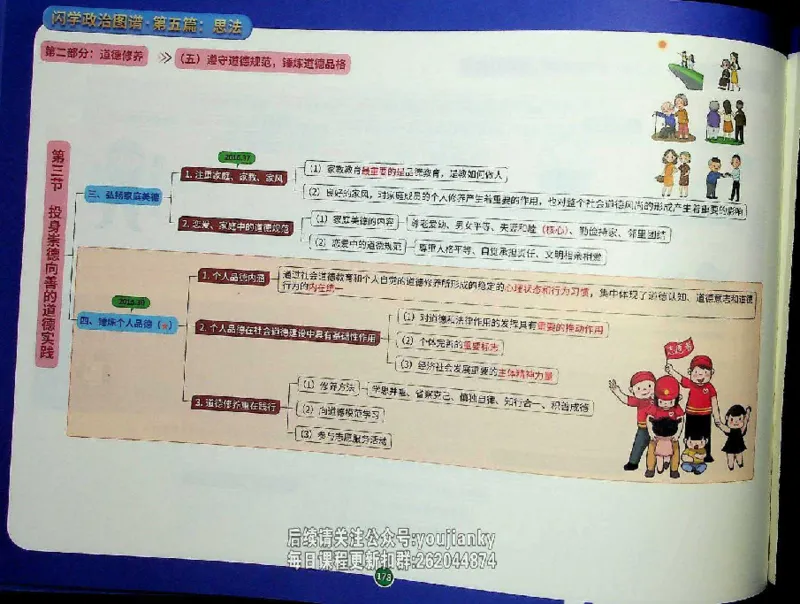 闪学政治图谱·第五篇：思法
第二部分：道德修养
（五）遵守道德规范，锤炼道德品格
第三节 投身崇德向善的道德实践
三、弘扬家庭美德
2016.37
1. 注重家庭、家教、家风
（1）家教教育最重要的是品德教育，是教如何做人
（2）良好的家风，对家庭成员的个人修养产生着重要的作用，也对整个社会道德风尚的形成产生着重要的影响
2. 恋爱、家庭中的道德规范
（1）家庭美德的内容
尊老爱幼、男女平等、夫妻和睦（核心）、勤俭持家、邻里团结
（2）恋爱中的道德规范
尊重人格平等、自觉承担责任、文明相亲相爱
2016.30
四、锤炼个人品德（★）
1. 个人品德内涵
通过社会道德教育和个人自觉的道德修养所形成的稳定的心理状态和行为习惯，集中体现了道德认知、道德意志和道德
行为的内在统一
2. 个人品德在社会道德建设中具有基础性作用
（1）对道德和法律作用的发挥具有重要的推动作用
（2）个体完善的重要标志
（3）经济社会发展重要的主体精神力量
3. 道德修养重在践行
（1）修养方法
学思并重、省察克己、慎独自律、知行合一、积善成德
（2）向道德模范学习
（3）参与志愿服务活动
志愿者
后续请关注公众号:youjianky
每日课程更新扣群:262044874
178